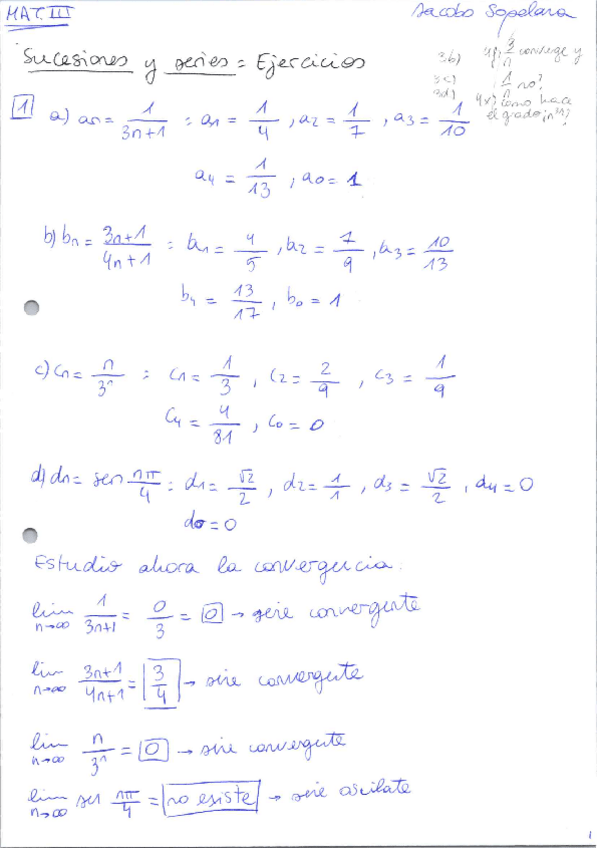 MAT. III Jacobo Sopelana
Sucesiones y series = Ejercicios
3b) 4f) 3/n converge y
3c) 1/n no?
3d) 4x) como hace
el grado
1 a) an = 1/(3n+1) : a1 = 1/4, a2 = 1/7, a3 = 1/10
a4 = 1/13, a0 = 1
b) bn = (3n+1)/(4n+1) : b1 = 4/5, b2 = 7/9, b3 = 10/13
b4 = 13/17, b0 = 1
c) Cn = n/3^n : C1 = 1/3, C2 = 2/9, C3 = 1/9
C4 = 4/81, C0 = 0
d) dn = sen nπ/4 : d1 = √2/2, d2 = 1/1, d3 = √2/2, d4 = 0
d0 = 0
Estudio ahora la convergencia:
lim n→∞ 1/(3n+1) = 0/3 = 0 → serie convergente
lim n→∞ (3n+1)/(4n+1) = 3/4 → serie convergente
lim n→∞ n/3^n = 0 → serie convergente
lim n→∞ sen nπ/4 = no existe → serie oscilate
1